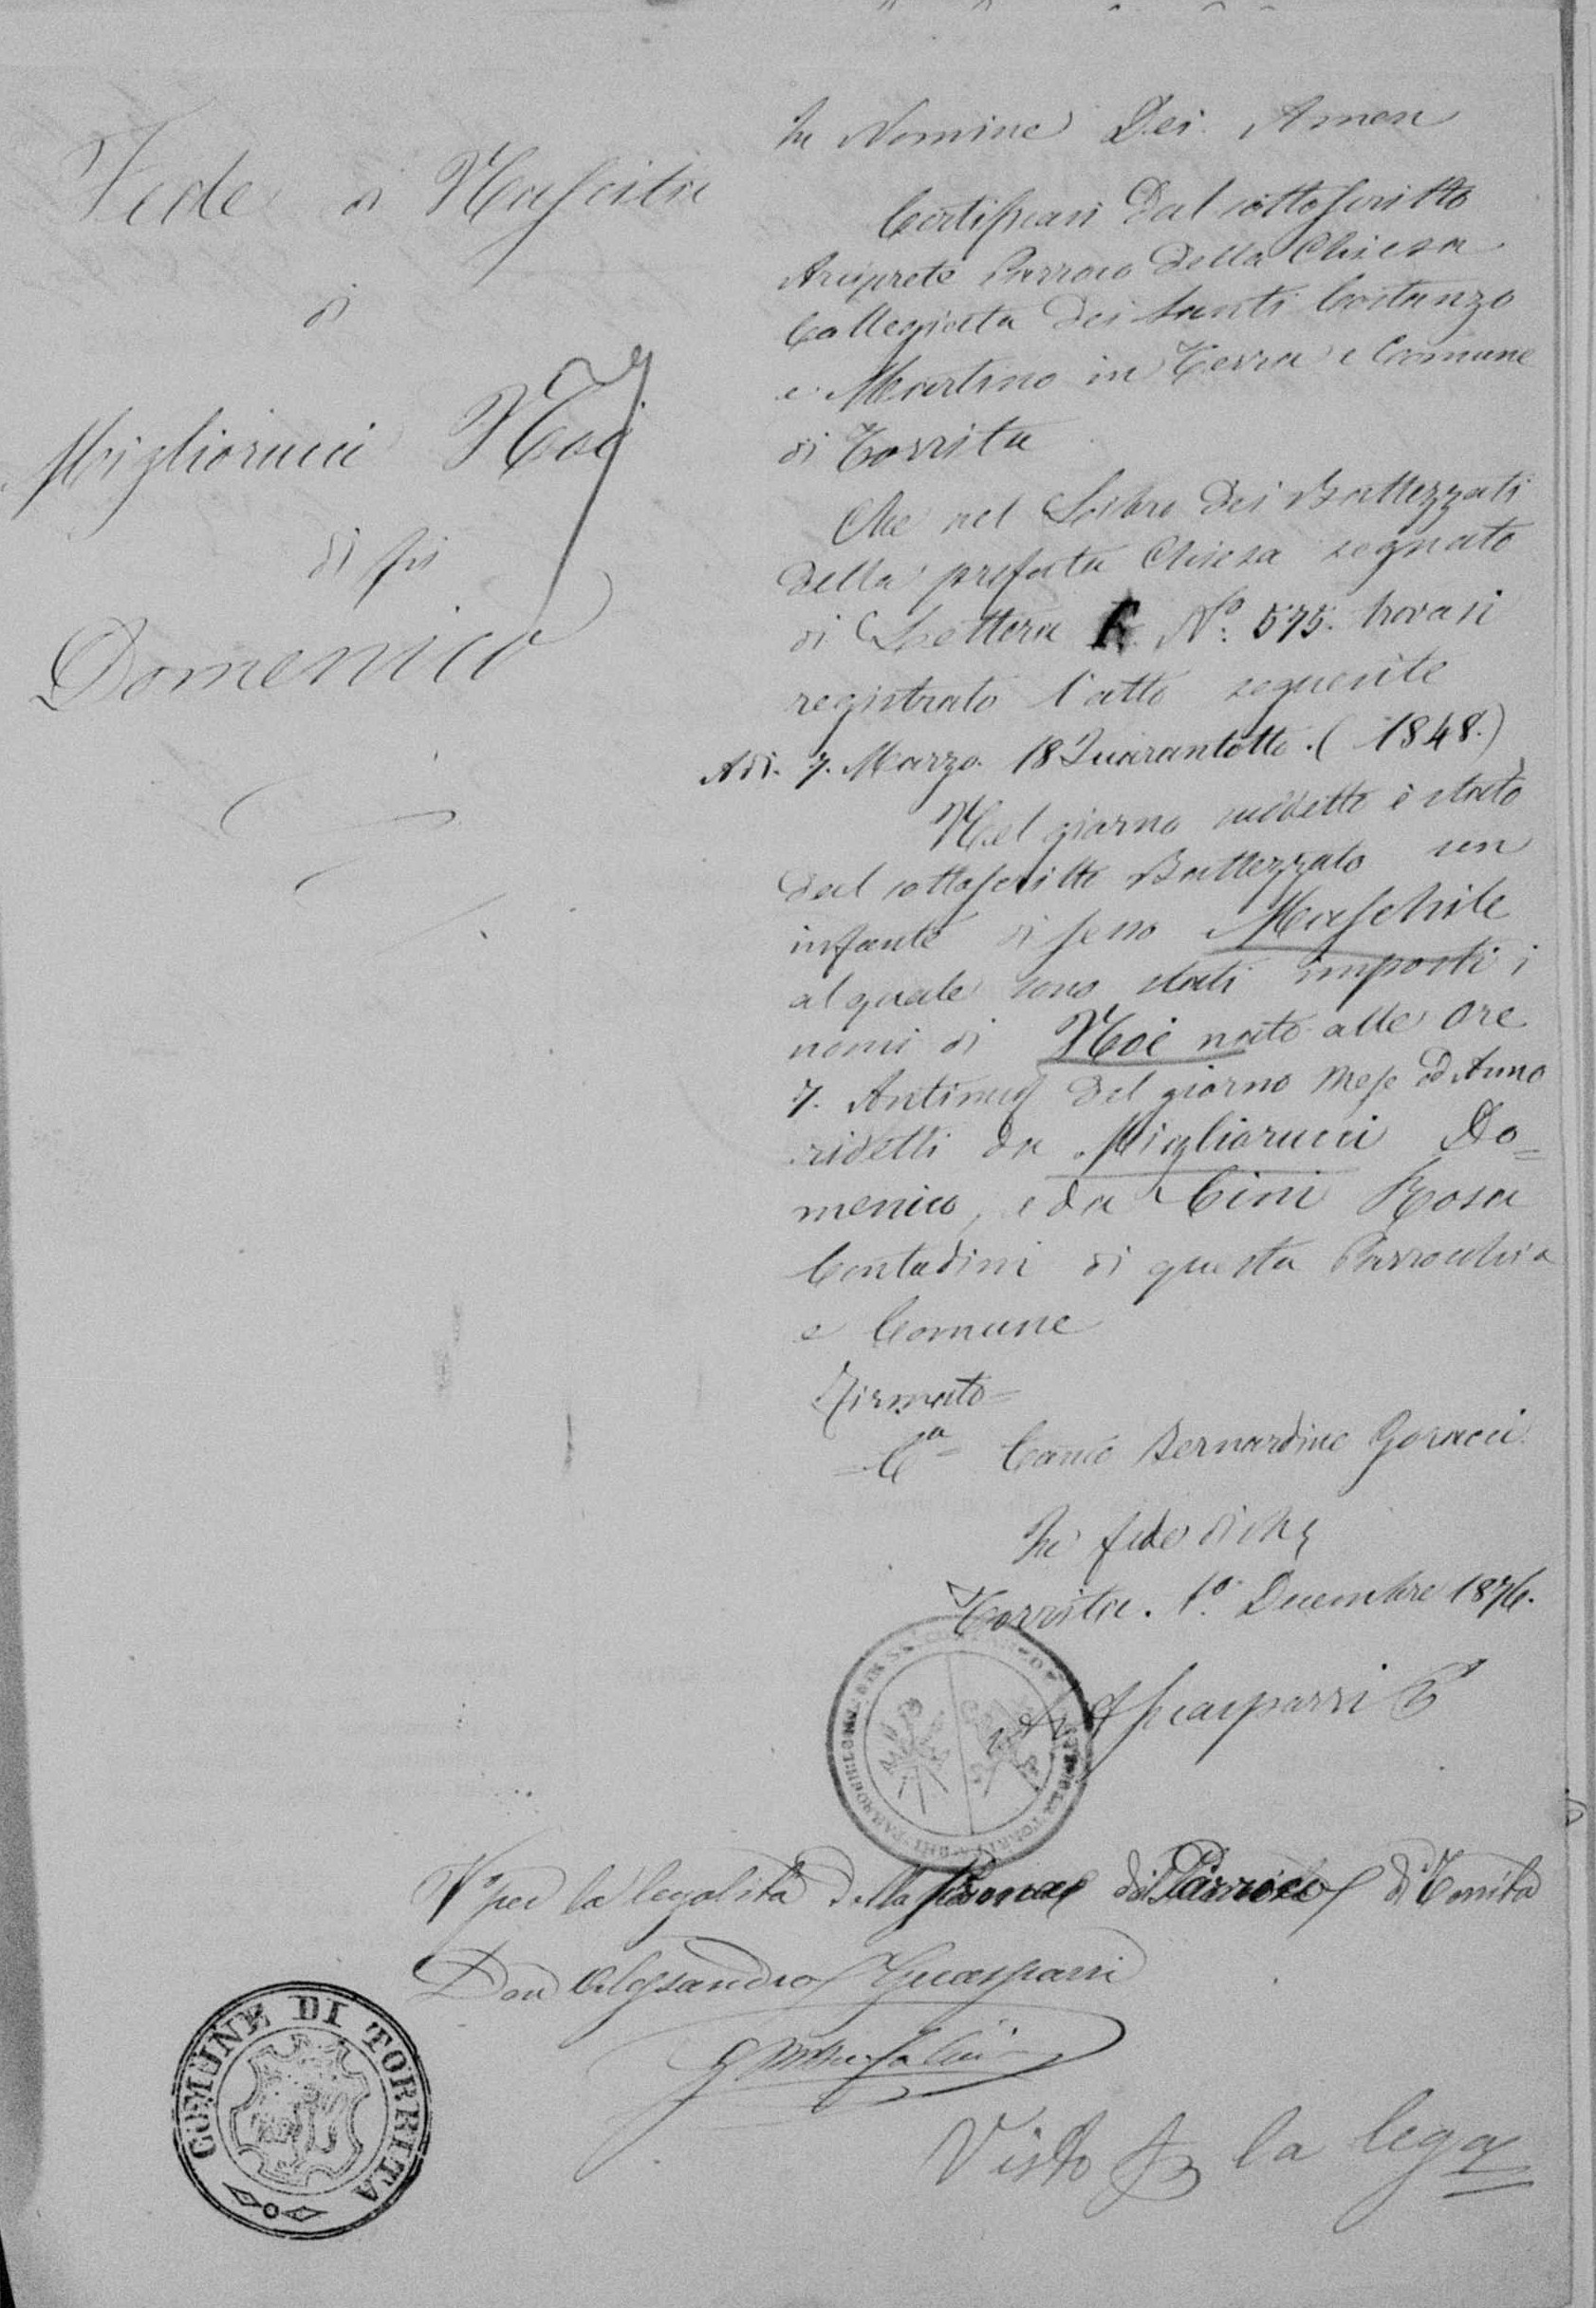 Fede di Nascita
di
Migliorucci Noè
di fù
Domenico
In Nomine Dei Amen
Certificasi dal sottoscritto
Arciprete Parroco della Chiesa
Collegiata dei Santi Costanzo
e Martino in Terra e Comune
di Torrita
Che nel Libro dei Battezzati
della prefata Chiesa segnato
di Lettera N° 575. trovasi
registrato l'atto seguente
Adì. 7. Marzo. 18Quarantotto. (1848.)
Nel giorno suddetto è stato
dal sottoscritto Battezzato un
infante di sesso Maschile
al quale sono stati imposti i
nomi di Noè nato alle ore
7. Antimed del giorno Mese ed Anno
ridetti da Migliorucci Do=
menico, e da Cini Rosa
Contadini di questa Parrocchia
e Comune
Firmato=
=Ca= Canco Bernardino Goracci
In fede di che
Torrita. 1° Decembre 1876.
V° per la legalità della firma del Parroco di Torrita
Don Alessandro Guasparri
COMUNE DI TORRITA
Visto per la lega